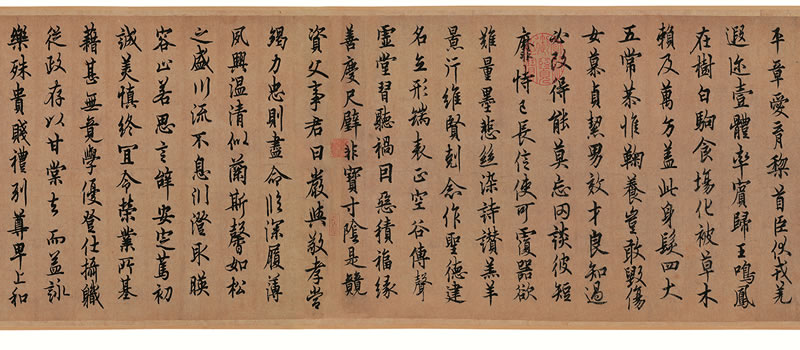 平章愛育黎首臣伏戎羌
遐迩壹體率賓歸王鳴鳳
在樹白駒食場化被草木
賴及萬方蓋此身髮四大
五常恭惟鞠養豈敢毀傷
女慕貞絜男效才良知過
必改得能莫忘罔談彼短
靡恃己長信使可覆器欲
難量墨悲絲染詩讚羔羊
景行維賢剋念作聖德建
名立形端表正空谷傳聲
虛堂習聽禍因惡積福緣
善慶尺璧非寶寸陰是競
資父事君曰嚴與敬孝當
竭力忠則盡命臨深履薄
夙興温清似蘭斯馨如松
之盛川流不息淵澄取暎
容止若思言辭安定篤初
誠美慎終宜令榮業所基
藉甚無竟學優登仕攝職
從政存以甘棠去而益詠
樂殊貴賤禮別尊卑上和